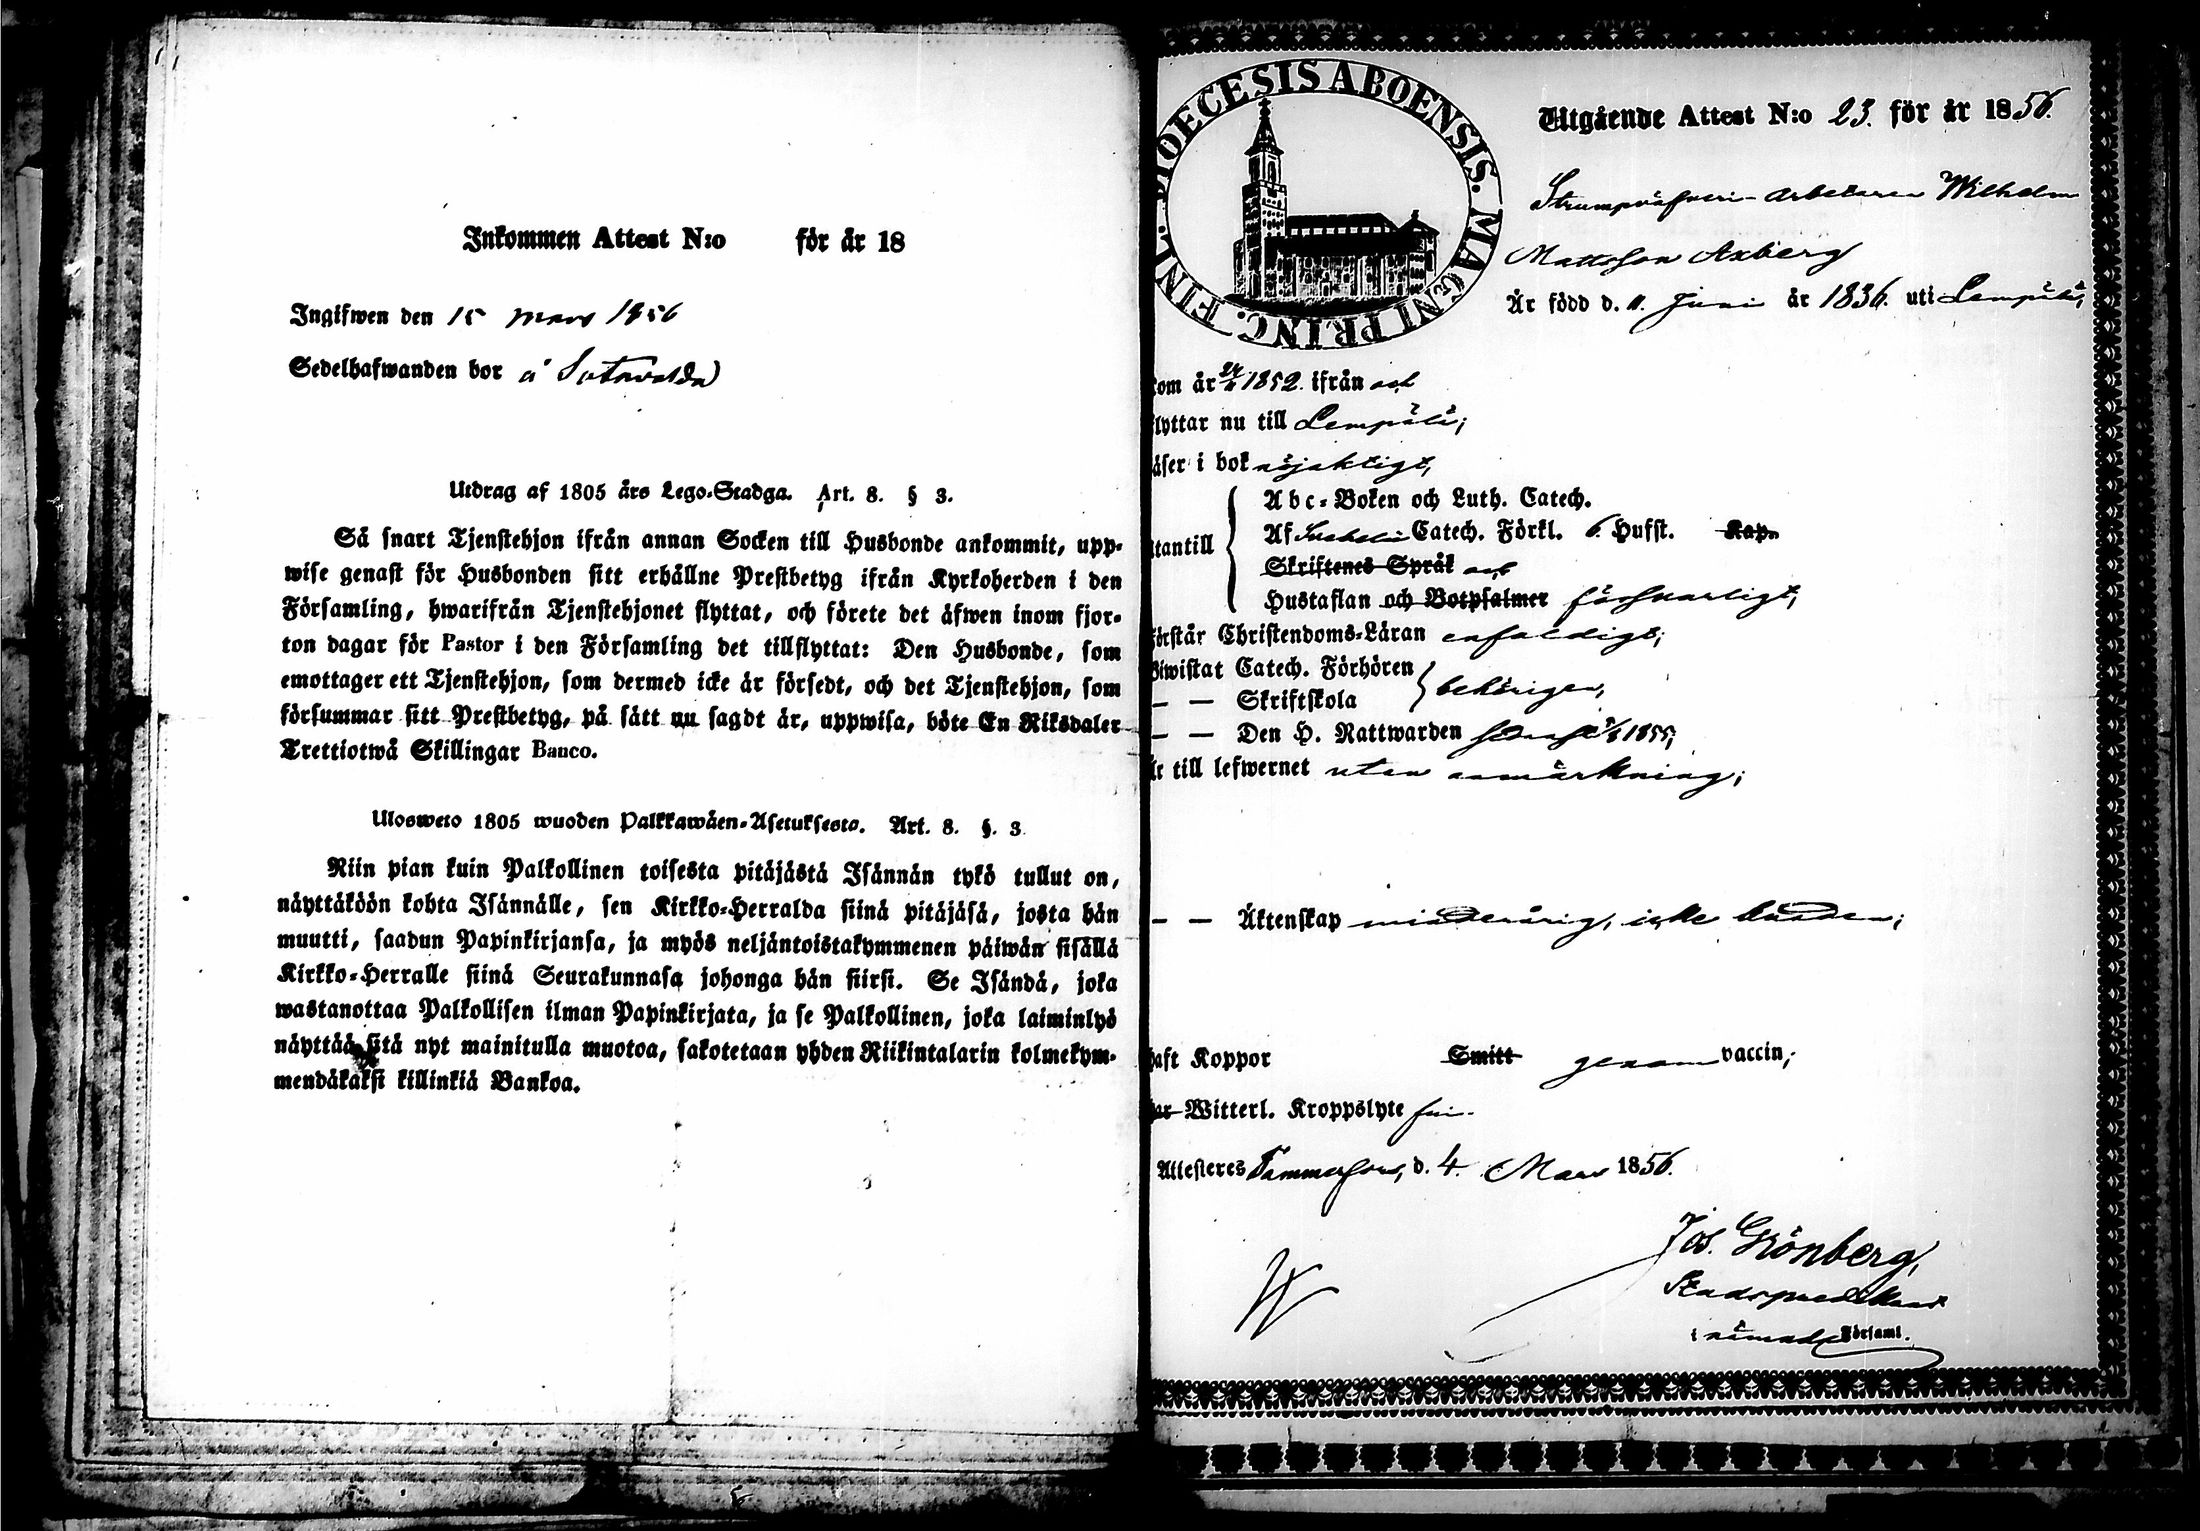 Inkommen Attest N:o för år 18
Ingifwen den 15 mars 1856
Sedelhafwanden bor å Sotavalda
Utdrag af 1805 års Lego-Stadga. Art. 8. § 3.
Så snart Tjenstehjon ifrån annan Socken till Husbonde ankommit, upp-
wise genast för Husbonden sitt erhållne Prestbetyg ifrån Kyrkoherden i den
Församling, hwarifrån Tjenstehjonet flyttat, och förete det äfwen inom fjor-
ton dagar för Pastor i den Församling det tillflyttat: Den Husbonde, som
emottager ett Tjenstehjon, som dermed icke är försedt, och det Tjenstehjon, som
försummar sitt Prestbetyg, på sätt nu sagdt är, uppwisa, böte En Riksdaler
Trettiotwå Skillingar Banco.
Ulosweto 1805 wuoden Palkkawäen-Asetuksesta. Art. 8. §. 3
Niin pian kuin Palkollinen toisesta pitäjästä Isännän tykö tullut on,
näyttäköön kohta Isännälle, sen Kirkko-Herralda siinä pitäjäsä, josta hän
muutti, saadun Papinkirjansa, ja myös neljäntoistakymmenen päiwän sisällä
Kirkko-Herralle siinä Seurakunnasa johonga hän siirsi. Se Isändä, joka
wastanottaa Palkollisen ilman Papinkirjata, ja se Palkollinen, joka laiminlyö
näyttää sitä nyt mainitulla muotoa, sakotetaan yhden Riikintalarin kolmekym-
mendäkaksi killinkiä Bankoa.
FINL. DIOECESIS ABOENSIS. MAGNI PRINC.
Utgående Attest N:o 23. för år 1856.
Strumpväfveri-Arbetaren Wilhelm
Mattsson Axberg
Är född d. 11. Juni år 1836. uti Lempälä,
kom år 1852. ifrån och
flyttar nu till Lempälä;
läser i bok nöjaktigt,
Utantill Abc-Boken och Luth. Catech.
Af Catech. Förkl. 6. Hufst. Kap.
Skriftenes Språk och
Hustaflan och Botpsalmer försvarligt,
förstår Christendoms-Läran enfaldigt;
Biwistat Catech. Förhören
— — Skriftskola behörigen,
— — Den H. Nattwarden 1855;
är till lefwernet utan anmärkning;
— — Äktenskap minderårig, icke bunden;
haft Koppor Smitt genom vaccin;
har Witterl. Kroppslyte fri.
Attesteres Tammerfors, d. 4. Mars 1856.
Jos. Grönberg,
Stadspredikant
i nämnde Församl.